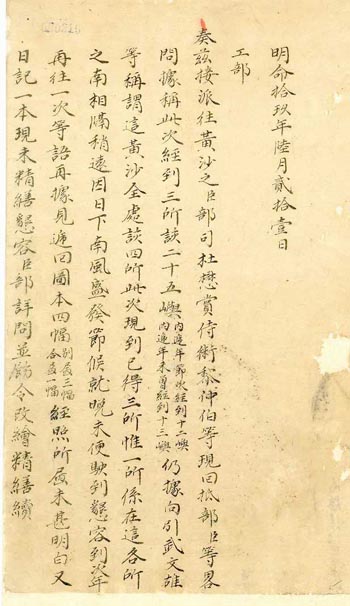 明命拾玖年陸月貳拾壹日
工部
奏茲接派往黃沙之臣部司杜懋賞侍衛黎仲伯等現回抵部臣等畧
問據稱此次經到三所該二十五嶼內遞年節次經到十二嶼內遞年未曾經到十三嶼仍據向引武文雄
等稱謂這黃沙全處該四所此次現到已得三所惟一所係在這各所
之南相隔稍遠因日下南風盛發節候就晚未便駛到懇容到次年
再往一次等語再據見遞回圖本四幅別畫三幅合畫一幅經照所畫未甚明白又
日記一本現未精繕懇容臣部詳問並飭令改繪精繕續